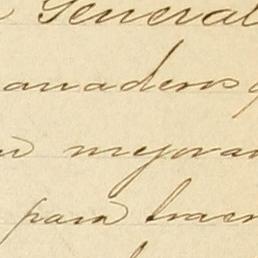 General
anaderos
mejorar
para traer